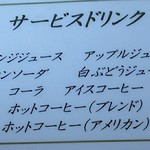 サービスドリンク
ンジジュース アップルジュ
ンソーダ 白ぶどうジュー
コーラ アイスコーヒー
ホットコーヒー(ブレンド)
ホットコーヒー(アメリカン)